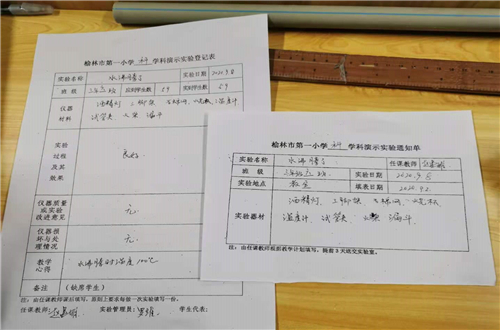 榆林市第一小学 科 学科演示实验登记表
实验名称 水沸腾了 实验日期 2020.9.8
班 级 应到学生数 59 实到学生数 59
仪器材料 酒精灯 三脚架 石棉网 温度计
试管夹 火柴
实验过程及其效果 良好
仪器质量或实验改进意见 无
仪器损坏与处理情况 无
教学心得 水沸腾时温度100℃
备注 (缺席学生)
注:由任课教师课后填写,原则上要求每做一次实验填写一份。
任课教师: 实验管理员: 学生代表:
榆林市第一小学 科 学科演示实验通知单
实验名称 水沸腾了 任课教师
班 级 实验日期 2020.9.8
实验地点 教室 填表日期 2020.9.2
实验器材 酒精灯 三脚架 石棉网
温度计 试管夹 火柴
注:由任课教师根据教学计划填写,提前3天送交实验室。